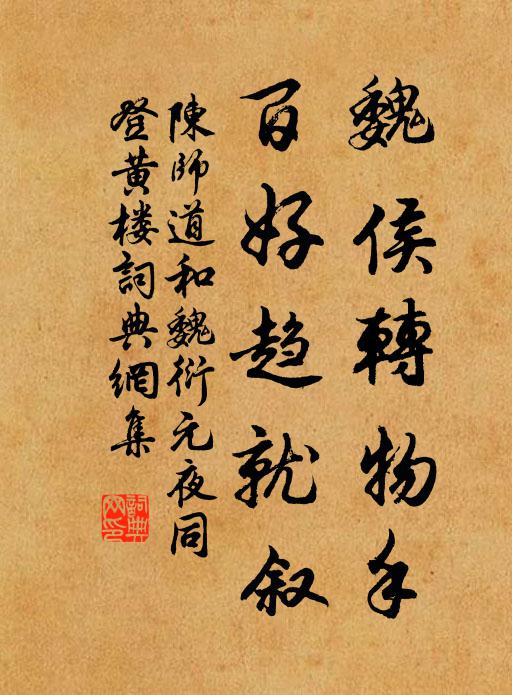 魏侯轉物手
百好趋就叙
陳師道和魏衍元夜同
登黄楼詞典網集
詞典
网印